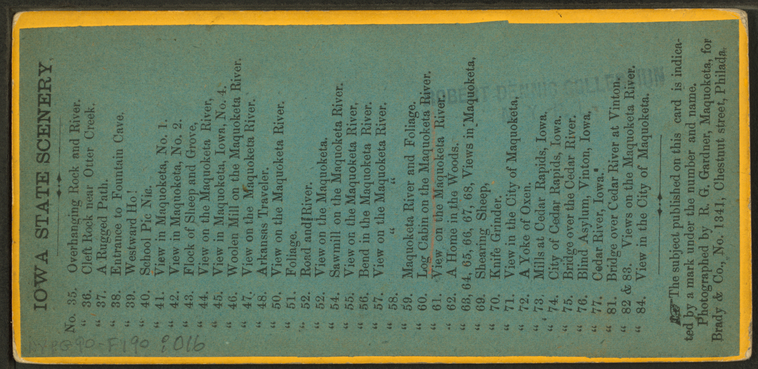 IOWA STATE SCENERY.
No. 35. Overhanging Rock and River.
" 36. Cleft Rock near Otter Creek.
" 37. A Rugged Path.
" 38. Entrance to Fountain Cave.
" 39. Westward Ho!
" 40. School Pic Nic.
" 41. View in Maquoketa, No. 1.
" 42. View in Maquoketa, No. 2.
" 43. Flock of Sheep and Grove,
" 44. View on the Maquoketa River,
" 45. View in Maquoketa, Iowa, No. 4.
" 46. Woolen Mill on the Maquoketa River.
" 47. View on the Maquoketa River.
" 48. Arkansas Traveler.
" 50. View on the Maquoketa River.
" 51. Foliage.
" 52. Road and River.
" 52. View on the Maquoketa.
" 54. Sawmill on the Maquoketa River.
" 55. View on the Maquoketa River.
" 56. Bend in the Maquoketa River.
" 57. View on the Maquoketa River.
" 58. " "
" 59. Maquoketa River and Foliage.
" 60. Log Cabin on the Maquoketa River.
" 61. View on the Maquoketa River,
" 62. A Home in the Woods.
" 63, 64, 65, 66, 67, 68, Views in Maquoketa,
" 69. Shearing Sheep,
" 70. Knife Grinder.
" 71. View in the City of Maquoketa,
" 72. A Yoke of Oxen.
" 73. Mills at Cedar Rapids, Iowa,
" 74. City of Cedar Rapids, Iowa.
" 75. Bridge over the Cedar River.
" 76. Blind Asylum, Vinton, Iowa,
" 77. Cedar River, Iowa.
" 81. Bridge over Cedar River at Vinton.
" 82 & 83, Views on the Maquoketa River.
" 84. View in the City of Maquoketa.
☞ The subject published on this card is indica-
ted by a mark under the number and name.
Photographed by R. G. Gardner, Maquoketa, for
Brady & Co., No. 1341, Chestnut street, Philada.
ROBERT DENNIS COLLECTION